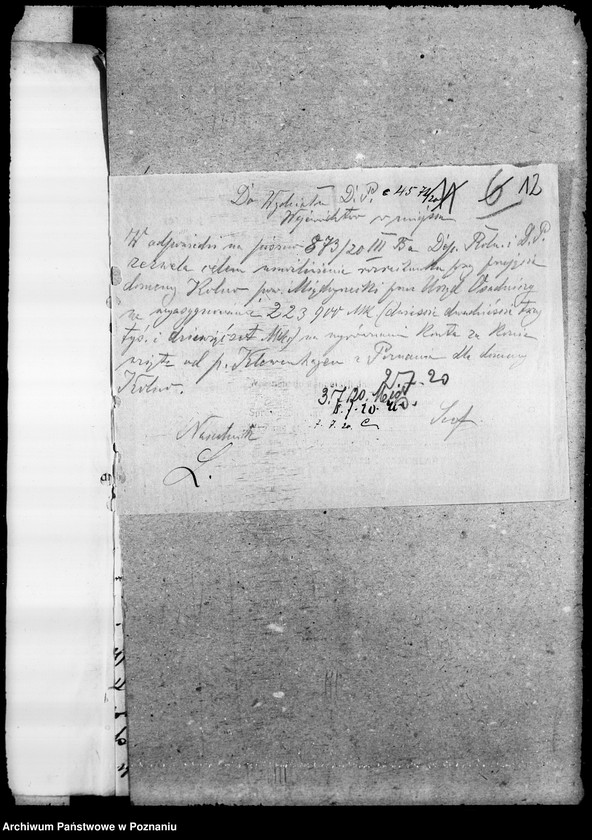 Do Wydziału D. P. 4574/20 6 12
Województwo w miejscu
W odpowiedzi na pismo 873/20 III Ba Dep. Roln. i D. P.
zezwala celem umożliwienia przy przejęciu
domeny Kolno pow. Międzyrzecki przez Urząd Osadniczy
na wyasygnowanie 223 900 Mk (dwieście dwadzieścia trzy
tyś. i dziewięćset Mk) na wyrównanie konta za konie
od p. z Poznania dla domeny
Kolno.
2.7.20
3.7.20.
8.7.20.
7.7.20. C
Naczelnik Szef.
L.
Archiwum Państwowe w Poznaniu